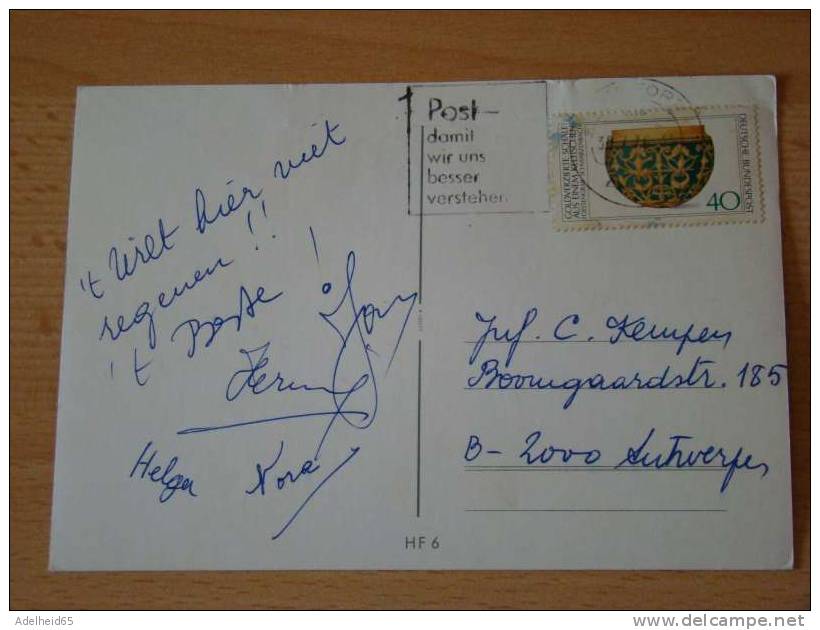 't Wilt hier niet
regenen !!
't Beste !
Herm
Helga Nora
Post –
damit
wir uns
besser
verstehen
GOLDVERZIERTE SCHALE
AUS EINEM KELTISCHEN
DEUTSCHE BUNDESPOST
40
Juf. C. Kempen
Boomgaardstr. 185
B - 2000 Antwerpen
HF 6
Adelheid65
www.delcampe.net